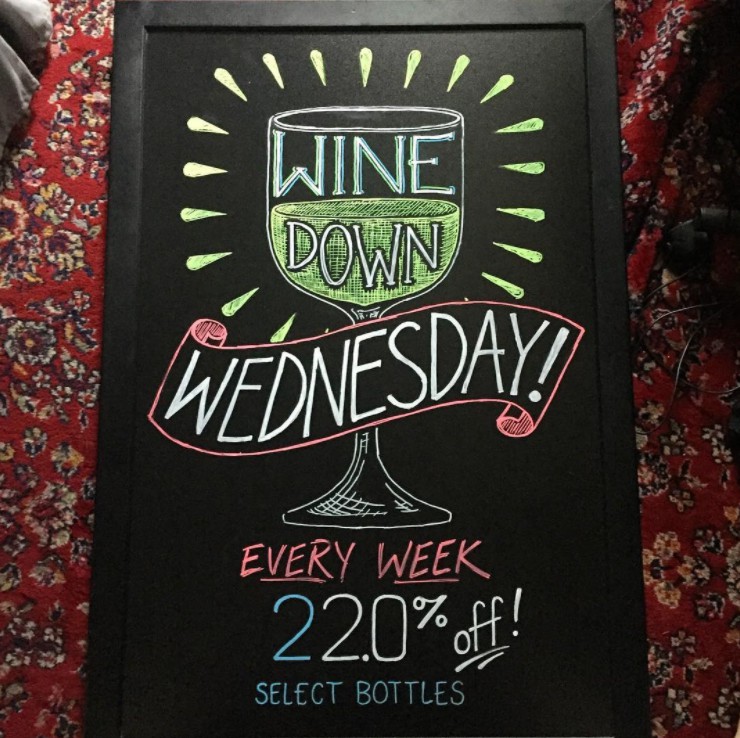 WINE
DOWN
WEDNESDAY!
EVERY WEEK
22.0% off!
SELECT BOTTLES